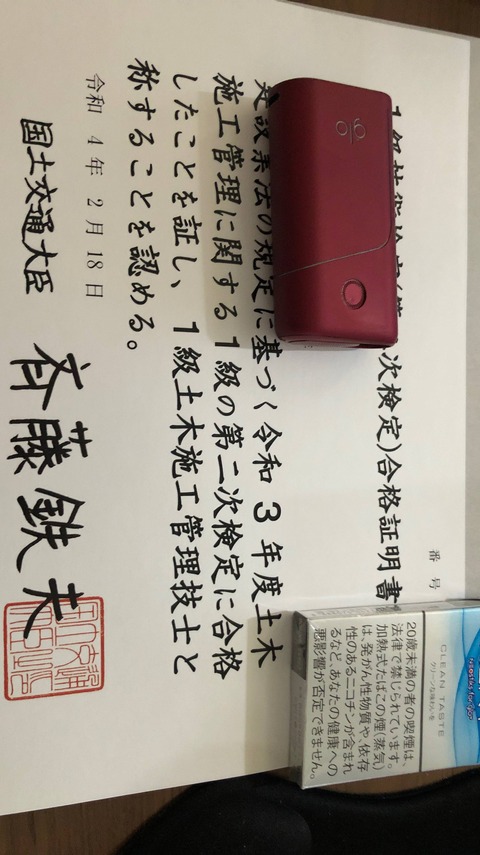 級技術検定(第二次検定)合格証明書
番号
建設業法の規定に基づく令和3年度土木
施工管理に関する1級の第二次検定に合格
したことを証し、1級土木施工管理技士と
称することを認める。
令和4年2月18日
国土交通大臣 斉藤鉄夫
glo
CLEAN TASTE
クリーンな味わいを
20歳未満の者の喫煙は、
法律で禁じられています。
加熱式たばこの煙(蒸気)
は、発がん性物質や、依存
性のあるニコチンが含まれ
るなど、あなたの健康への
悪影響が否定できません。